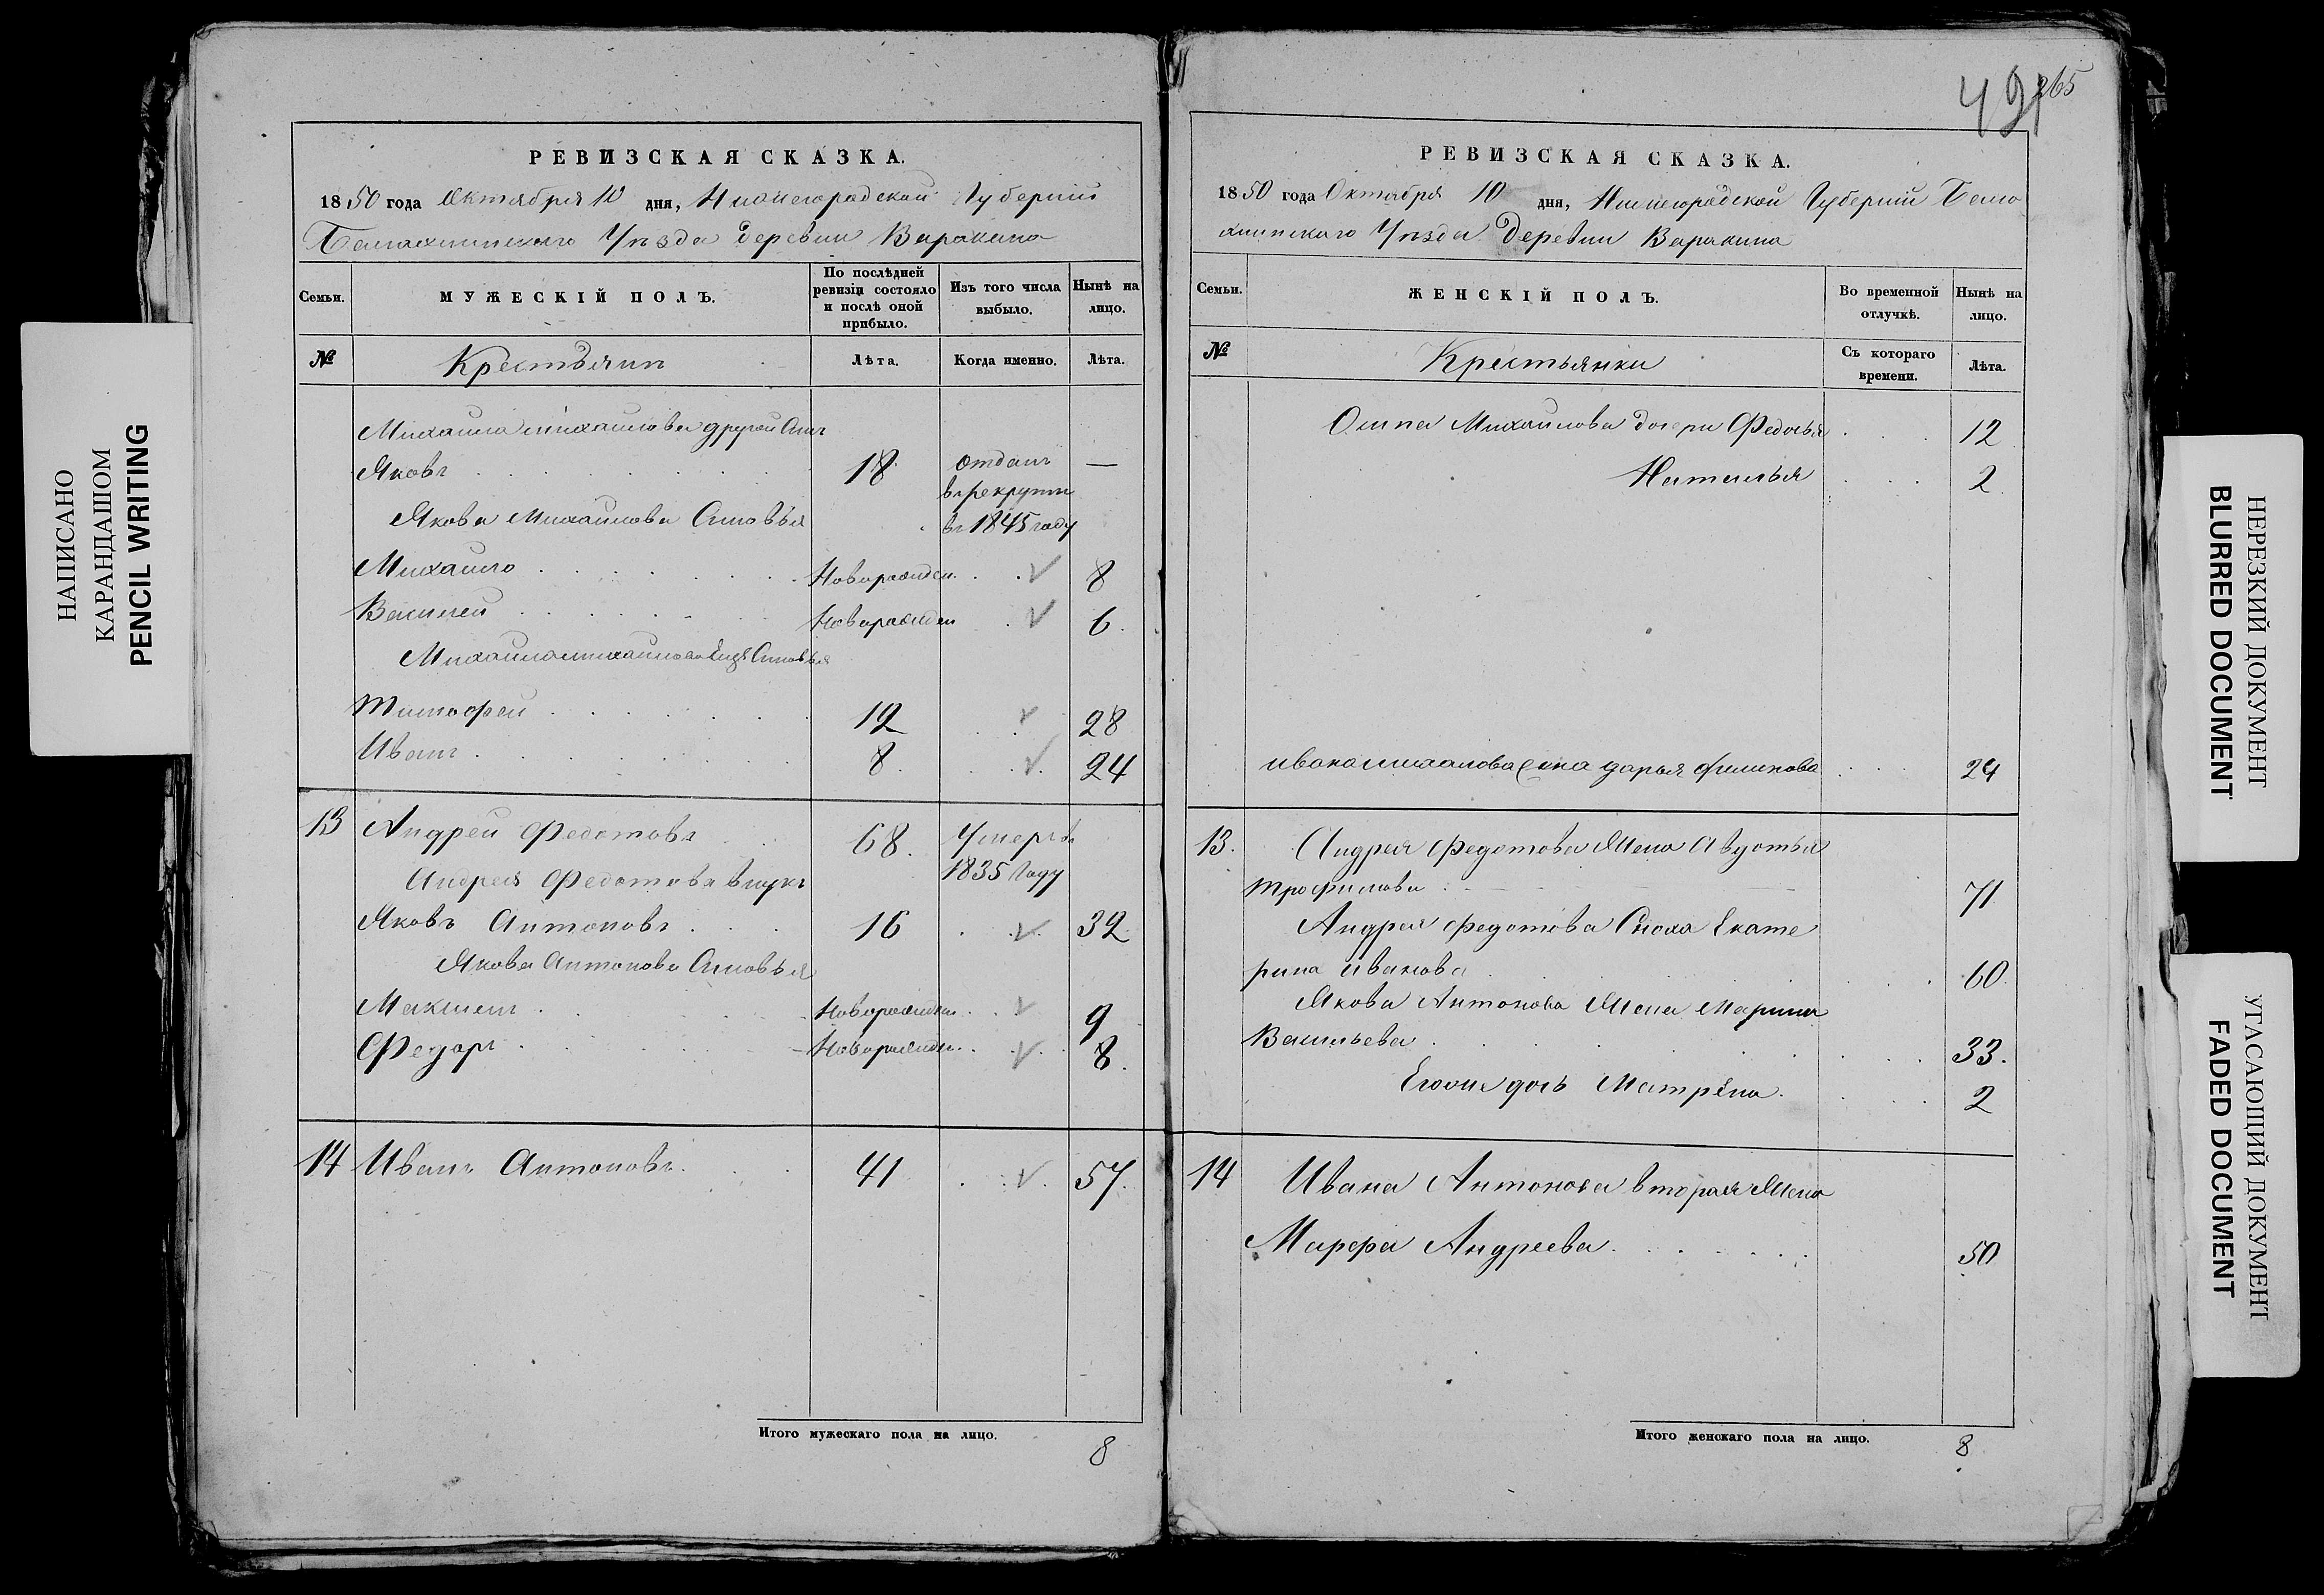 НАПИСАНО
КАРАНДАШОМ
PENCIL WRITING
РЕВИЗСКАЯ СКАЗКА.
1850 года Октября 10 дня, Нижегородской Губернии
Балахнинскаго Уѣзда деревни Варакина
Семьи.
МУЖЕСКІЙ ПОЛЪ.
По послѣдней ревизіи состояло и послѣ оной прибыло.
Изъ того числа выбыло.
Нынѣ на лицо.
№
Крестьянин
Лѣта.
Когда именно.
Лѣта.
Михаила михаилова другой Сынъ
Яковъ 18 отданъ —
в рекруты
Якова Михаилова Сыновья въ 1845 году
Михаило Новорожден. 8
Василей Новорожден 6.
Михаила михаилова Сыновья
Тимофеи 12 28
Иванъ 8. 24
13 Андреи Федотовъ 68. Умеръ в
Андрея Федотова внукъ 1835 Году
Яковъ Антоновъ 16 32
Якова Антонова Сыновья
Максимъ Новорожден 9
Федоръ Новорожден. 8.
14 Иванъ Антоновъ. 41 57.
Итого мужескаго пола на лицо. 8
491 265
РЕВИЗСКАЯ СКАЗКА.
1850 года Октября 10 дня, Нижегородской Губерніи Бала
хнинскаго Уѣзда Деревни Варакина
Семьи.
ЖЕНСКІЙ ПОЛЪ.
Во временной отлучкѣ.
Нынѣ на лицо.
№
Крестьянки
Съ котораго времени.
Лѣта.
Михаилова дочери Федосья 12
Наталья 2.
ивана михалова жена дарья филипова 24
13. Андрея Федотова Жена Авдотья
трофимова 71
Андрея федотова Сноха Екате
рина иванова 60.
Якова Антонова Жена Марина
Васильева 33.
Егоже дочь Матрёна. 2
14 Ивана Антонова вторая Жена
Марфа Андреева. 50
Итого женскаго пола на лицо. 8
НЕРЕЗКИЙ ДОКУМЕНТ
BLURRED DOCUMENT
УГАСАЮЩИЙ ДОКУМЕНТ
FADED DOCUMENT